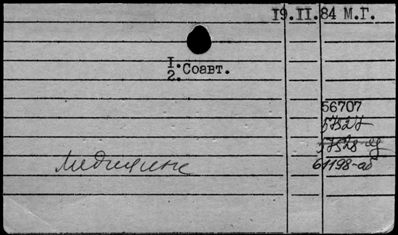 19.II.84 М.Г.
1. Соавт.
2.
56707
57527
57528-ад
61198-ад
Медицина